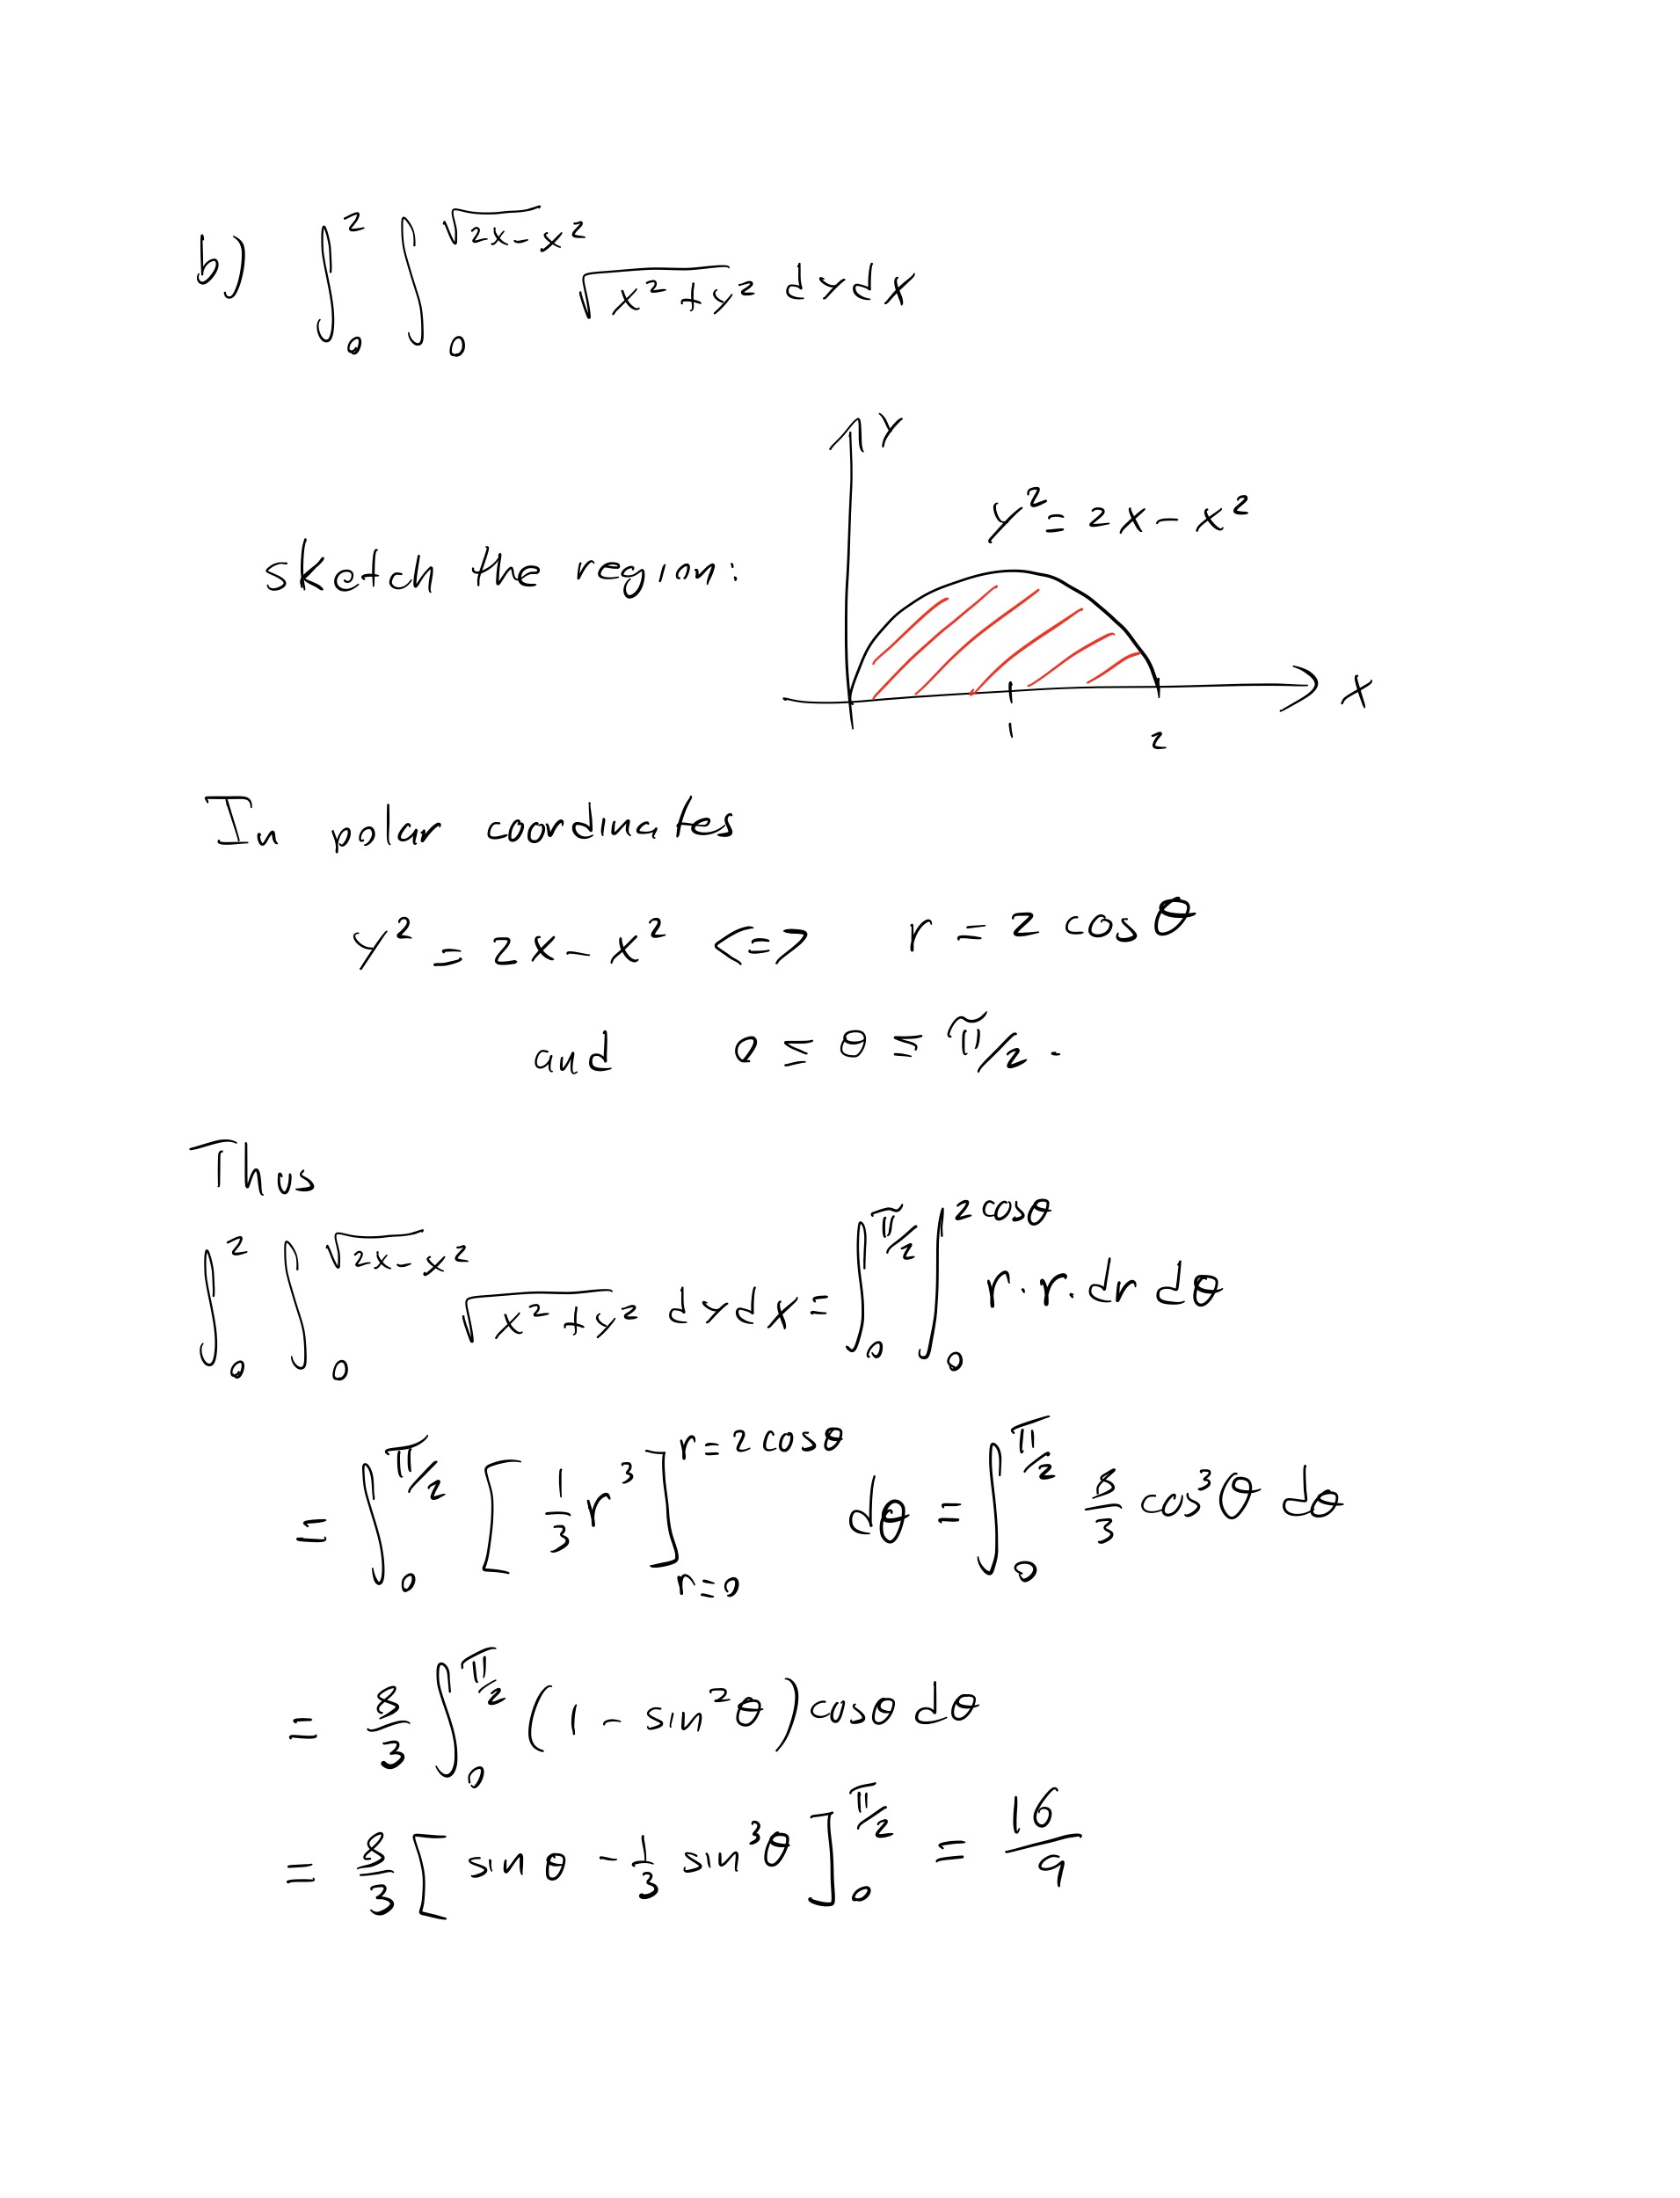 b) ∫₀² ∫₀^√(2x-x²) √(x²+y²) dydx
Y
y² = 2x - x²
sketch the region:
X
1 2
In polar coordinates
y² = 2x - x² <=> r = 2 cos θ
and 0 ≤ θ ≤ π/2.
Thus
∫₀² ∫₀^√(2x-x²) √(x²+y²) dydx = ∫₀^(π/2) ∫₀^(2 cosθ) r·r·dr dθ
= ∫₀^(π/2) [1/3 r³]_(r=0)^(r=2 cosθ) dθ = ∫₀^(π/2) 8/3 cos³θ dθ
= 8/3 ∫₀^(π/2) (1 - sin²θ) cosθ dθ
= 8/3 [sin θ - 1/3 sin³θ]₀^(π/2) = 16/9